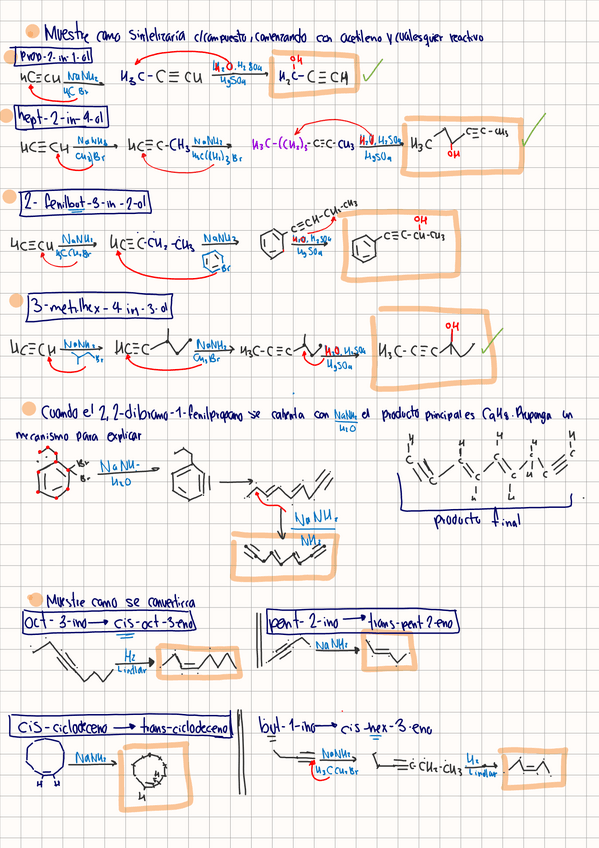 Muestre como sintetizaria c/compuesto, comenzando con acetileno y cualesquier reactivo
Prop-2-in-1-ol
HC≡CH NaNH₂ H₃C Br H₃C-C≡CH H₂O, H₂SO₄ HgSO₄ OH H₂C-C≡CH
hept-2-in-4-ol
HC≡CH NaNH₂ CH₃Br HC≡C-CH₃ NaNH₂ H₃C(CH₂)₃Br H₃C-(CH₂)₃-C≡C-CH₃ H₂O, H₂SO₄ HgSO₄ H₃C C≡C-CH₃ OH
2-fenilbut-3-in-2-ol
HC≡CH NaNH₂ H₃CCH₂Br HC≡C-CH₂-CH₃ NaNH₂ Br C≡CH-CH₂-CH₃ H₂O, H₂SO₄ HgSO₄ C≡C-CH-CH₃ OH
3-metilhex-4-in-3-ol
HC≡CH NaNH₂ Br HC≡C NaNH₂ CH₃Br H₃C-C≡C H₂O, H₂SO₄ HgSO₄ H₃C-C≡C OH
Cuando el 2,2-dibromo-1-fenilpropano se calienta con NaNH₂ el producto principal es C₉H₈. Proponga un
H₂O
mecanismo para explicar
Br Br NaNH₂ H₂O
NaNH₂
NH₃
H C C C C C C C H H H H H
producto final
Muestre como se convertirca
oct-3-ino → cis-oct-3-eno
H₂ Lindlar
pent-2-ino → trans-pent 2-eno
NaNH₂
cis-ciclodeceno → trans-ciclodeceno
NaNH₂ H H H H
but-1-ino → cis-hex-3-eno
NaNH₂ H₃CCH₂Br C-CH₂-CH₃ H₂ Lindlar